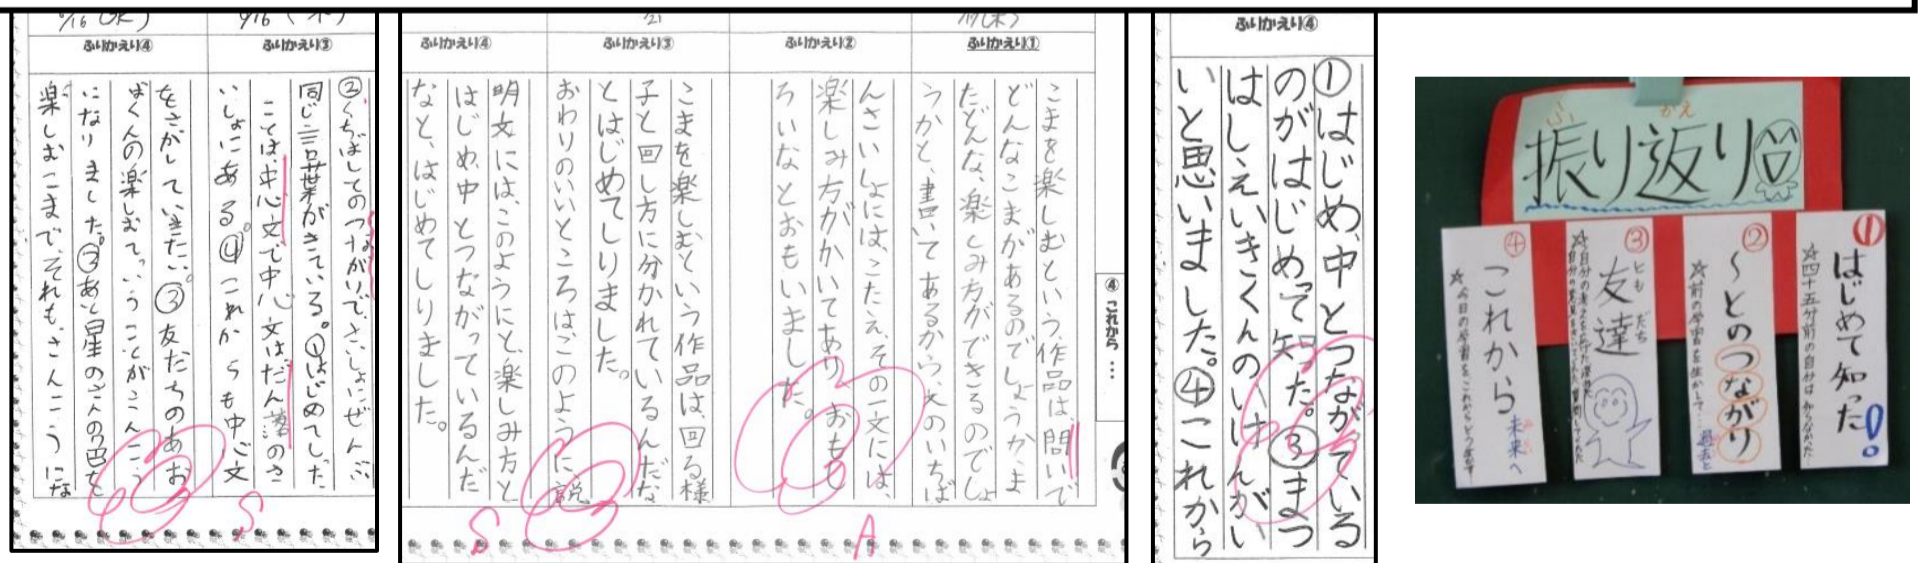 9/16(水)
9/16(木)
ふりかえり③
②くちばしてのつながりで、さいしょにぜんぶ
同じ言葉がきている。①はじめてした
ことは、中心文で中心文はだん落のさ
いしょにある。④これからも中心文
ふりかえり④
をさがしていきたい。③友だちのあお
ばくんの楽しむっていうことがさんこう
になりました。③あと星の人の色を
楽しむこまで、それも、さんこうにな
ふりかえり①
こまを楽しむという、作品は、問いで
どんなこまがあるのでしょうかま
たどんな、楽しみ方ができるのでしょ
うかと、書いてあるから、文のいちば
ふりかえり②
んさいしょには、こたえ、その一文には、
楽しみ方がかいてあり、おもし
ろいなとおもいました。
7/21
ふりかえり③
こまを楽しむという作品は、回る様
子と回し方に分かれているんだな
とはじめてしりました。
おわりのいいところはこのように説
ふりかえり④
明文には、このようにと、楽しみ方と
はじめ、中とつながっているんだ
なと、はじめてしりました。
④ これから…
ふりかえり④
①はじめ、中とつながっている
のがはじめって知った。③まつ
はしえいきくんのいけんがい
いと思いました。④これから
振り返り
ふ
かえ
①はじめて知った!
☆四十五分前の自分は知らなかった…
②~とのつながり
☆前の学習を生かして…
過去と
③友達
ともだち
④これから
未来へ
☆今日の学習をこれからどう生かす
S
A
S